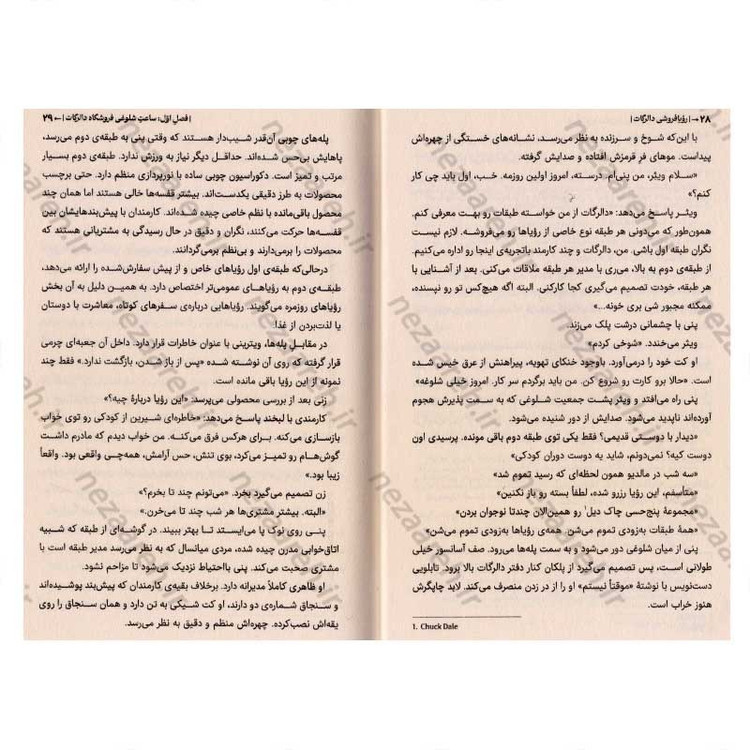 ۲۸ → | رؤیافروشی دالرگات |
با این‌که شوخ و سرزنده به نظر می‌رسد، نشانه‌های خستگی از چهره‌اش
پیداست. موهای فر قرمزش افتاده و صدایش گرفته.
«سلام ویتر، من پنی‌ام. درسته، امروز اولین روزمه. خب، اول باید چی کار
کنم؟»
ویتر پاسخ می‌دهد: «دالرگات از من خواسته طبقات رو بهت معرفی کنم.
همون‌طور که می‌دونی هر طبقه نوع خاصی از رؤیاها رو می‌فروشه. لازم نیست
نگران طبقه اول باشی. من، دالرگات و چند کارمند باتجربه‌ی اینجا رو اداره می‌کنیم.
از طبقه‌ی دوم به بالا، می‌ری با مدیر هر طبقه ملاقات می‌کنی. بعد از آشنایی با
هر طبقه، خودت تصمیم می‌گیری کجا کارکنی. البته اگه هیچ‌کس تو رو نپسنده،
ممکنه مجبور شی بری خونه...»
پنی با چشمانی درشت پلک می‌زند.
ویتر می‌خندد. «شوخی کردم»
او کت خود را درمی‌آورد. باوجود خنکای تهویه، پیراهنش از عرق خیس شده
است. «حالا برو کارت رو شروع کن. من باید برگردم سر کار. امروز خیلی شلوغه»
پنی راه می‌افتد و ویتر پشت جمعیت شلوغی که به سمت پذیرش هجوم
آورده‌اند ناپدید می‌شود. صدایش از دور شنیده می‌شود.
«دیدار با دوستی قدیمی؟ فقط یکی توی طبقه دوم باقی مونده. پرسیدی اون
دوست کیه؟ نمی‌دونم، شاید یه دوست دوران کودکی»
«سه شب در مالدیو همون لحظه‌ای که رسید تموم شد»
«متأسفم، این رؤیا رزرو شده، لطفاً بسته رو باز نکنین»
«مجموعهٔ پنج‌حسی چاک دیل¹ رو همین‌الان چندتا نوجوان بردن»
«همهٔ طبقات به‌زودی تموم می‌شن. همه‌ی رؤیاها به‌زودی تموم می‌شن»
پنی از میان شلوغی دور می‌شود و به سمت پله‌ها می‌رود. صف آسانسور خیلی
طولانی است، پس تصمیم می‌گیرد از پلکان کنار دفتر دالرگات بالا برود. تابلویی
دست‌نویس با نوشتهٔ «موقتاً نیستم» او را از در زدن منصرف می‌کند. لابد چاپگرش
هنوز خراب است.
1. Chuck Dale
| فصل اوّل: ساعتِ شلوغی فروشگاه دالرگات | ← ۲۹
پله‌های چوبی آن‌قدر شیب‌دار هستند که وقتی پنی به طبقه‌ی دوم می‌رسد،
پاهایش بی‌حس شده‌اند. حداقل دیگر نیاز به ورزش ندارد. طبقه‌ی دوم بسیار
مرتب و تمیز است. دکوراسیون چوبی ساده با نورپردازی منظم دارد. حتی برچسب
محصولات به طرز دقیقی یکدست‌اند. بیشتر قفسه‌ها خالی هستند اما همان چند
محصول باقی‌مانده با نظم خاصی چیده شده‌اند. کارمندان با پیش‌بندهایشان بین
قفسه‌ها حرکت می‌کنند، نگران و دقیق در حال رسیدگی به مشتریانی هستند که
محصولات را برمی‌دارند و بی‌نظم برمی‌گردانند.
درحالی‌که طبقه‌ی اول رؤیاهای خاص و از پیش سفارش‌شده را ارائه می‌دهد،
طبقه‌ی دوم به رؤیاهای عمومی‌تر اختصاص دارد. به همین دلیل به آن بخش
رؤیاهای روزمره می‌گویند. رؤیاهایی درباره‌ی سفرهای کوتاه، معاشرت با دوستان
یا لذت‌بردن از غذا!
در مقابل پله‌ها، ویترینی با عنوان خاطرات قرار دارد. داخل آن جعبه‌ای چرمی
قرار گرفته که روی آن نوشته شده «پس از باز شدن، بازگشت ندارد.» فقط چند
نمونه از این رؤیا باقی مانده است.
زنی بعد از بررسی محصولی می‌پرسد: «این رؤیا دربارهٔ چیه؟»
کارمندی با لبخند پاسخ می‌دهد: «خاطره‌ای شیرین از کودکی رو توی خواب
بازسازی می‌کنه. برای هرکس فرق می‌کنه. من خواب دیدم که مادرم داشت
گوش‌هام رو تمیز می‌کرد، بوی تنش، حس آرامش، همه‌چی واقعی بود. واقعاً
زیبا بود.»
زن تصمیم می‌گیرد بخرد. «می‌تونم چند تا بخرم؟»
«البته. بیشتر مشتری‌ها هر شب چند تا می‌خرن.»
پنی روی نوک پا می‌ایستد تا بهتر ببیند. در گوشه‌ای از طبقه که شبیه
اتاق‌خوابی مدرن چیده شده، مردی میانسال که به نظر می‌رسد مدیر طبقه است با
مشتری صحبت می‌کند. پنی بااحتیاط نزدیک می‌شود تا مزاحم نشود.
او ظاهری کاملاً مدیرانه دارد. برخلاف بقیه‌ی کارمندان که پیش‌بند پوشیده‌اند
و سنجاق شماره‌ی دو دارند، او کت شیکی به تن دارد و همان سنجاق را روی
یقه‌اش نصب‌کرده. چهره‌اش منظم و دقیق به نظر می‌رسد.
nezaareh.ir